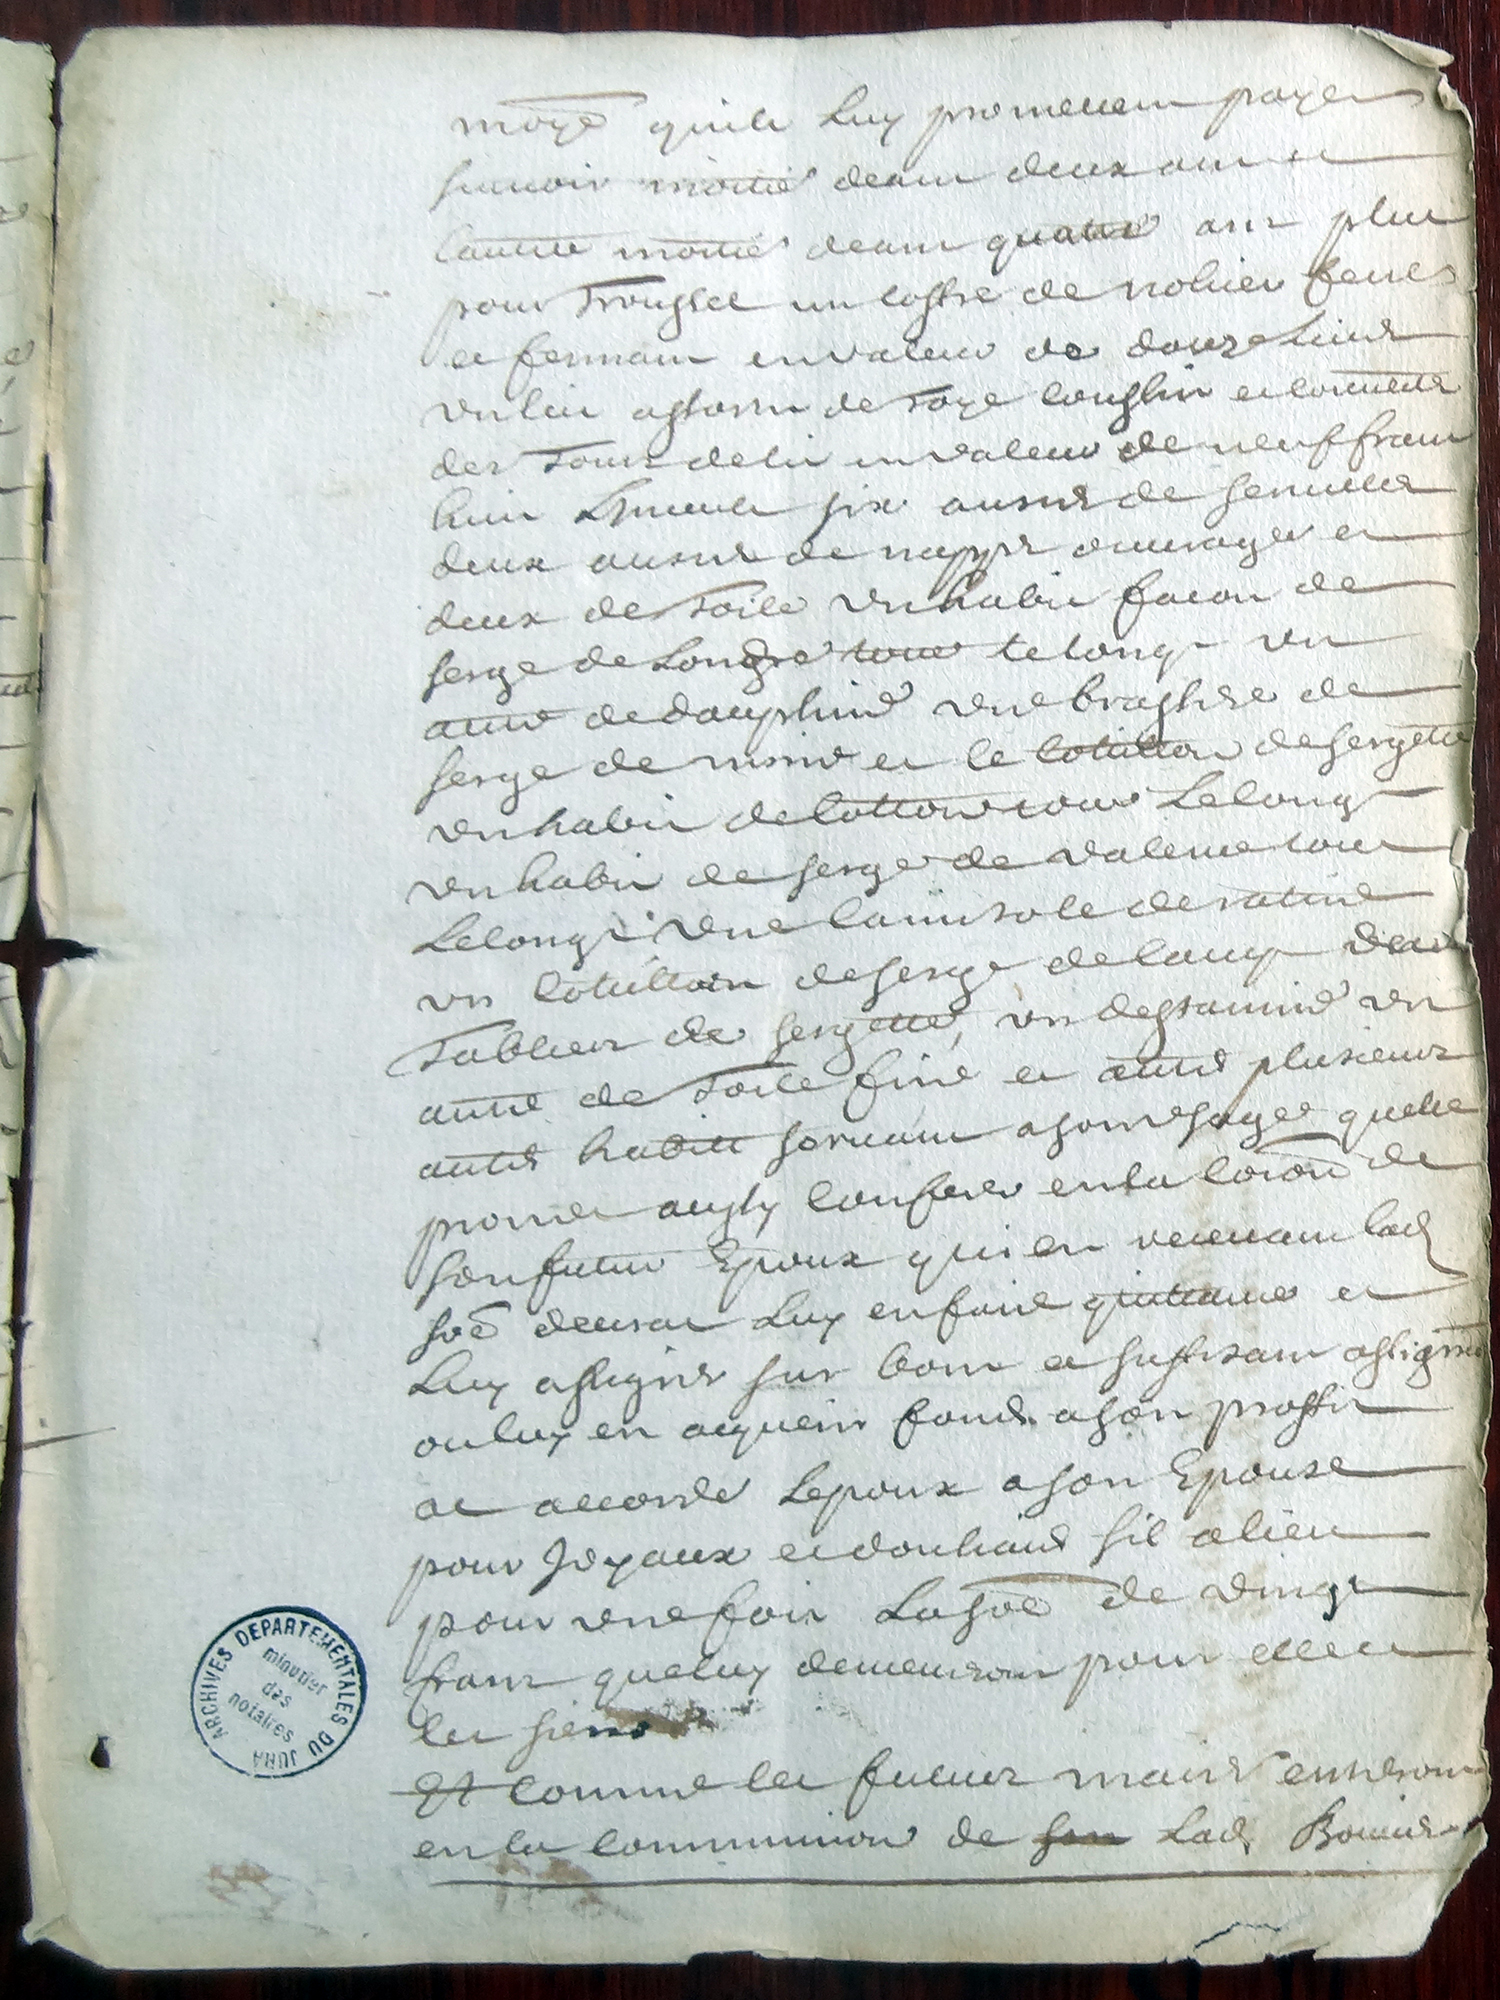 moyé quils Luy promettent payer
scavoir moitié deans deux ans et
lautre moitié deans quatre ans plus
pour Troussel un coffre de nohier ferré
et fermant en valeur de douze Livres
un lict de Taye coussin et couverte
des Tours de lit en valeur de neuf francs
huit Linceuls six aunes de serviettes
deux aunes de nappes ouvragés et
deux de Toile un habit facon de
serge de Londre tout le long un
autre de dauphiné une brassire de
serge de et le cotillion de sergette
un habit de cottone tout Le long
un habit de serge de valence tout
Le long une camisole de ratine
un cotillion de serge de camp deux
Tabliers de sergette, un destamine un
autre de Toile fine et autres plusieurs
autres habitz servant a son usage quelle
promet aussy conferer en la coïon de
son futur Epoux qui en recevant lad
soê devrat Luy en faire quittance et
Luy assigner sur bons et suffisant assignal
ou luy en acquerir fonds a son proffit
at accordé Lepoux a son Epouse
pour Joyaux et douhaire sil a lieu
pour une fois La soê de vingt
frans que luy demeureront pour elle et
les siens
Et comme les futurs mariés entreront
en la communion de son Lad Bouvier
ARCHIVES DEPARTEMENTALES DU JURA
minutier
des
notaires